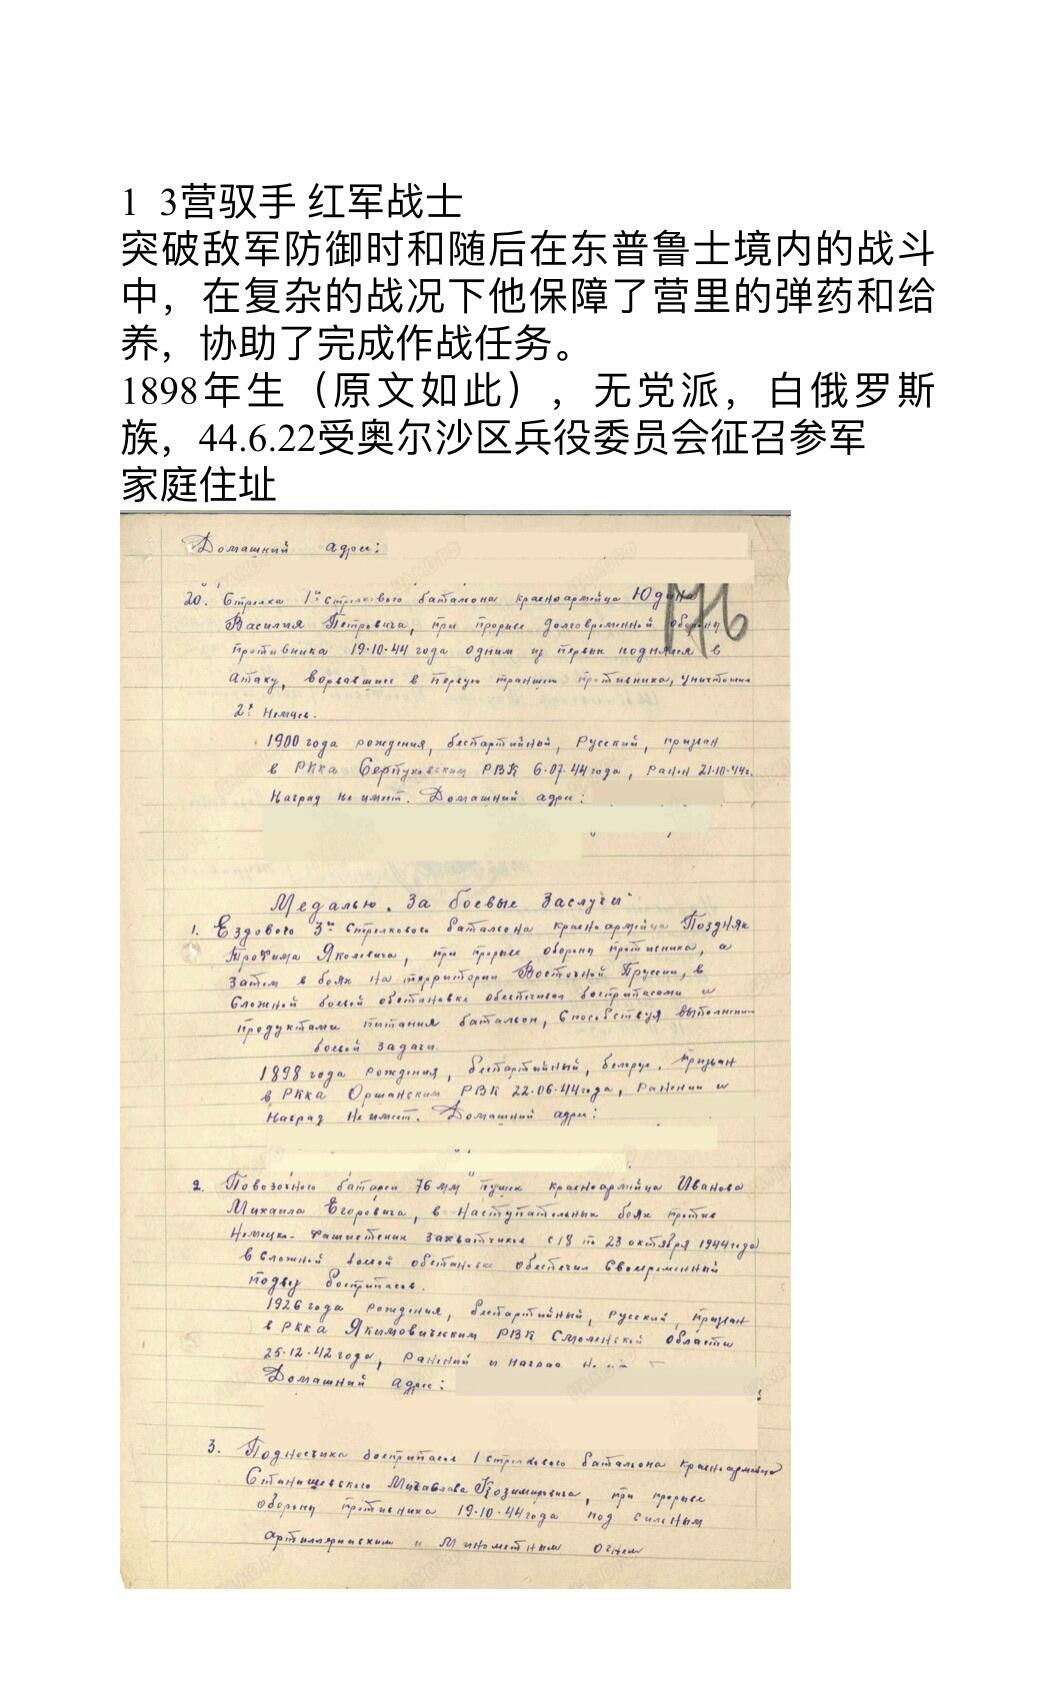 1 3营驭手 红军战士
突破敌军防御时和随后在东普鲁士境内的战斗
中，在复杂的战况下他保障了营里的弹药和给
养，协助了完成作战任务。
1898年生（原文如此），无党派，白俄罗斯
族，44.6.22受奥尔沙区兵役委员会征召参军
家庭住址
Домашний адрес:
20. Стрелка 1го стрелкового батальона красноармейца Юдина
Василия Петровича, при прорыве долговременной обороны
противника 19.10.44 года одним из первых поднялся в
атаку, ворвавшись в первую траншею противника, уничтожил
2х немцев.
1900 года рождения, беспартийный, Русский, призван
в РККА Серпуховским РВК 6.07.44 года, ранен 21.10.44г.
Наград не имеет. Домашний адрес:
Медалью „За боевые заслуги"
1. Ездового 3го стрелкового батальона красноармейца Поздняк
Трофима Яковлевича, при прорыве обороны противника, а
затем в боях на территории Восточной Пруссии, в
сложной боевой обстановке обеспечивал боеприпасами и
продуктами питания батальон, способствуя выполнению
боевой задачи.
1898 года рождения, беспартийный, белорус, призван
в РККА Оршанским РВК 22.06.44 года, ранений и
наград не имеет. Домашний адрес:
2. Повозочного батареи 76 мм пушек красноармейца Иванова
Михаила Егоровича, в наступательных боях против
Немецко-фашистских захватчиков с 18 по 23 октября 1944 года
в сложной боевой обстановке обеспечил своевременный
подвоз боеприпасов.
1926 года рождения, беспартийный, русский, призван
в РККА РВК Смоленской области
25.12.42 года, ранений и наград
Домашний адрес:
3. Подносчика боеприпасов 1 стрелкового батальона красноармейца
Станишевского Казимировича, при прорыве
обороны противника 19.10.44 года под сильным
артиллерийским и минометным огнем